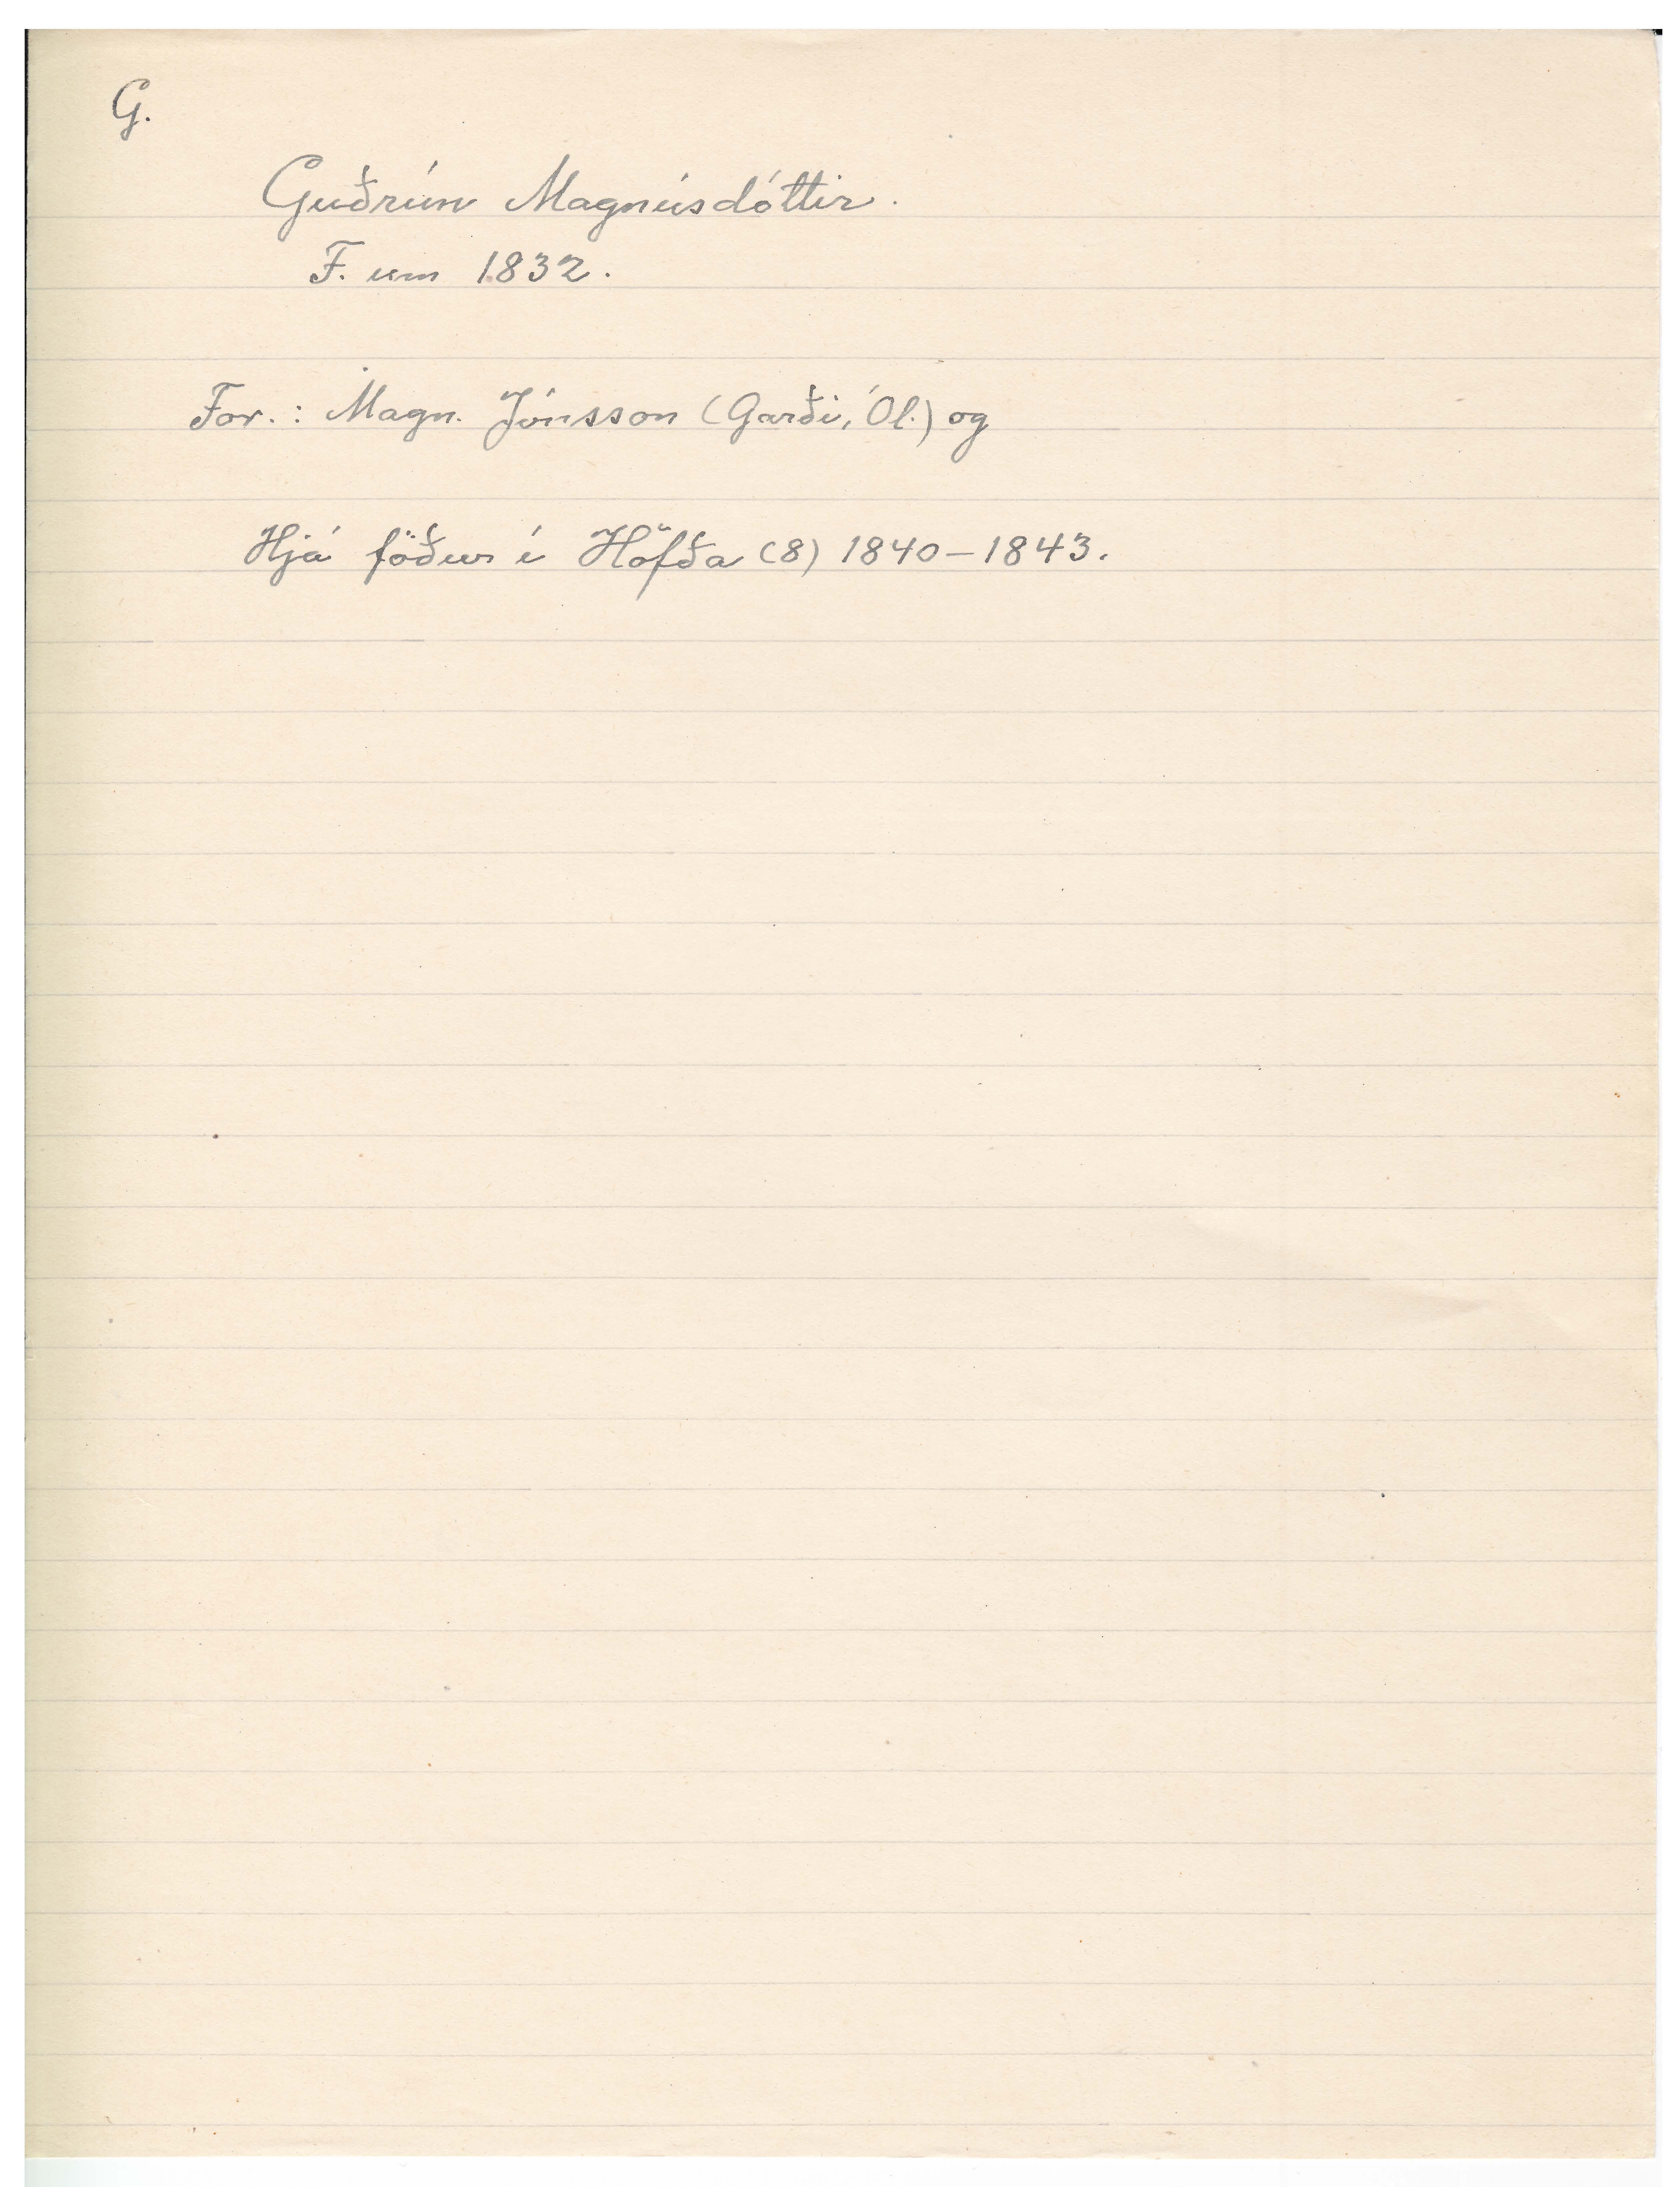 G.
Guðrún Magnúsdóttir.
F. um 1832.
For.: Magn. Jónsson (Garði, Ól.) og
Hjá föður í Höfða (8) 1840-1843.